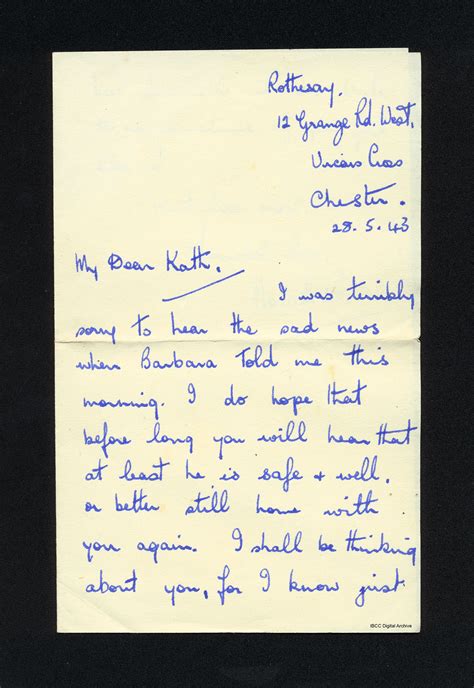 Rothesay.
12 Grange Rd. West,
Vicars Cross
Chester.
28.5.43
My Dear Kath,
I was terribly
sorry to hear the sad news
when Barbara told me this
morning. I do hope that
before long you will hear that
at least he is safe & well,
or better still home with
you again. I shall be thinking
about you, for I know just
IBCC Digital Archive